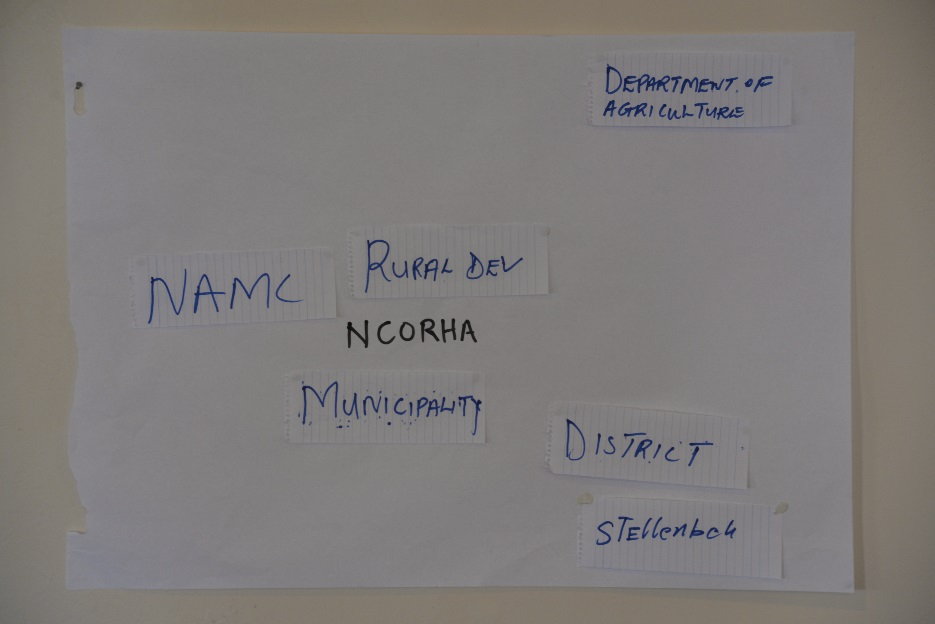 DEPARTMENT OF
AGRICULTURE
RURAL DEV
NAMC
NCORHA
MUNICIPALITY
DISTRICT
STEllenbch